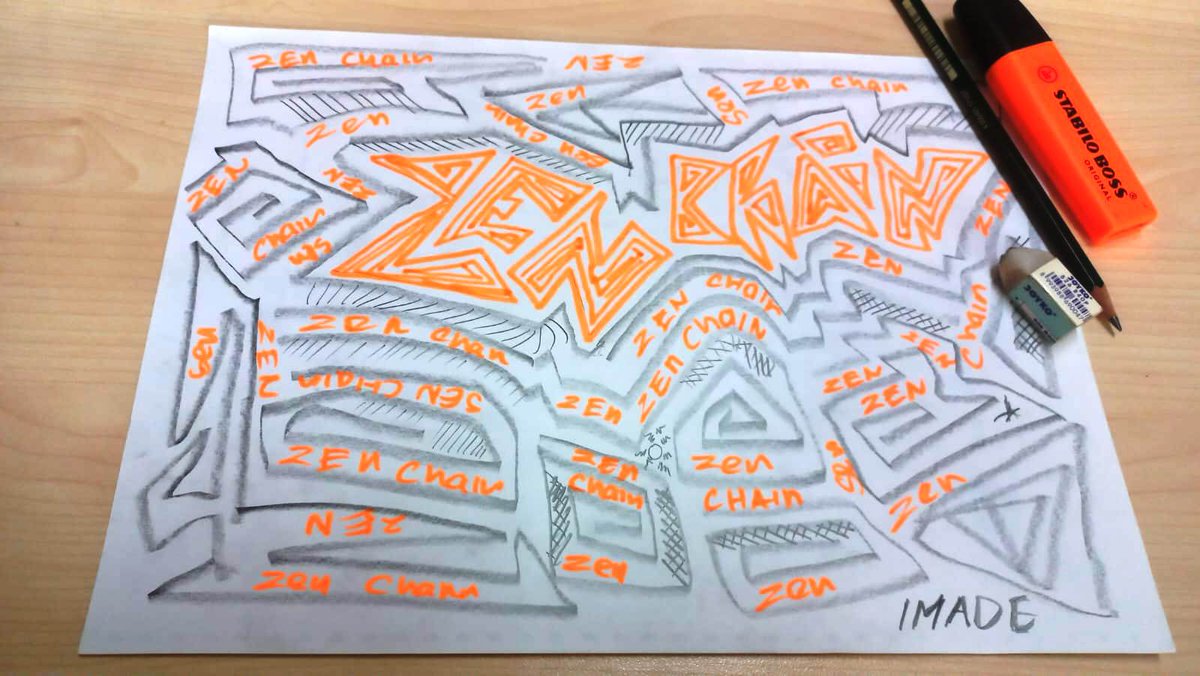 ZEN CHAIN
ZEN
zen chain
zen
zen
ZEN
ZEN
chain
ZEN
ZEN CHAIN
ZEN
ZEN
ZEN CHAIN
zen chan
ZEN
ZEN CHAIN
chain
ZEN
ZEN
ZEN
ZEN
ZEN
ZEN CHAIN
zen
CHAIN
ZEN
CHAIN
zen
zen
ZEN
zen
zen
IMADE
STABILO BOSS
ORIGINAL
JOYKO
JOYKO